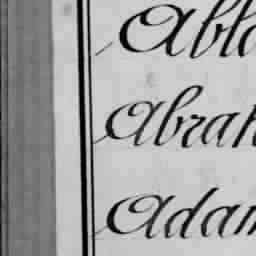 Abla
Abrah
Adam